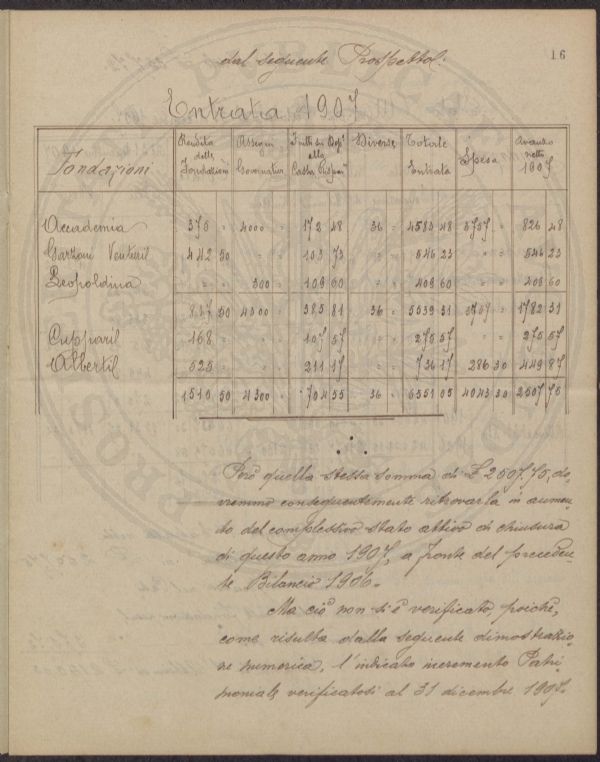 16
dal seguente Prospetto:
Entrata 1907
Fondazioni Rendita delle Fondazioni Assegni Governativi Frutti di Dep.ti alla Cassa Risp.mi Diverse Totale Entrata Spesa Avanzo netto 1907
Accademia 375 " 4000 " 172 48 36 " 4583 48 3757 " 826 48
Garzoni Venturi 442 50 " " 103 73 " " 546 23 " " 546 23
Leopoldina " " 300 " 109 60 " " 409 60 " " 409 60
817 50 4300 " 385 81 36 " 5539 31 3757 " 1782 31
Cuppari 168 " " " 107 57 " " 275 57 " " 275 57
Alberti 525 " " " 211 17 " " 736 17 286 30 449 87
1510 50 4300 " 704 55 36 " 6551 05 4043 30 2507 75
Però quella stessa somma di £ 2507.75, do-
vremmo conseguentemente ritrovarla in aumen-
to del complessivo stato attivo di chiusura
di questo anno 1907, a fronte del preceden-
te Bilancio 1906.
Ma ciò non si è verificato, poichè,
come risulta dalla seguente dimostrazio-
ne numerica, l'indicato incremento Patri-
moniale verificatosi al 31 dicembre 1907.